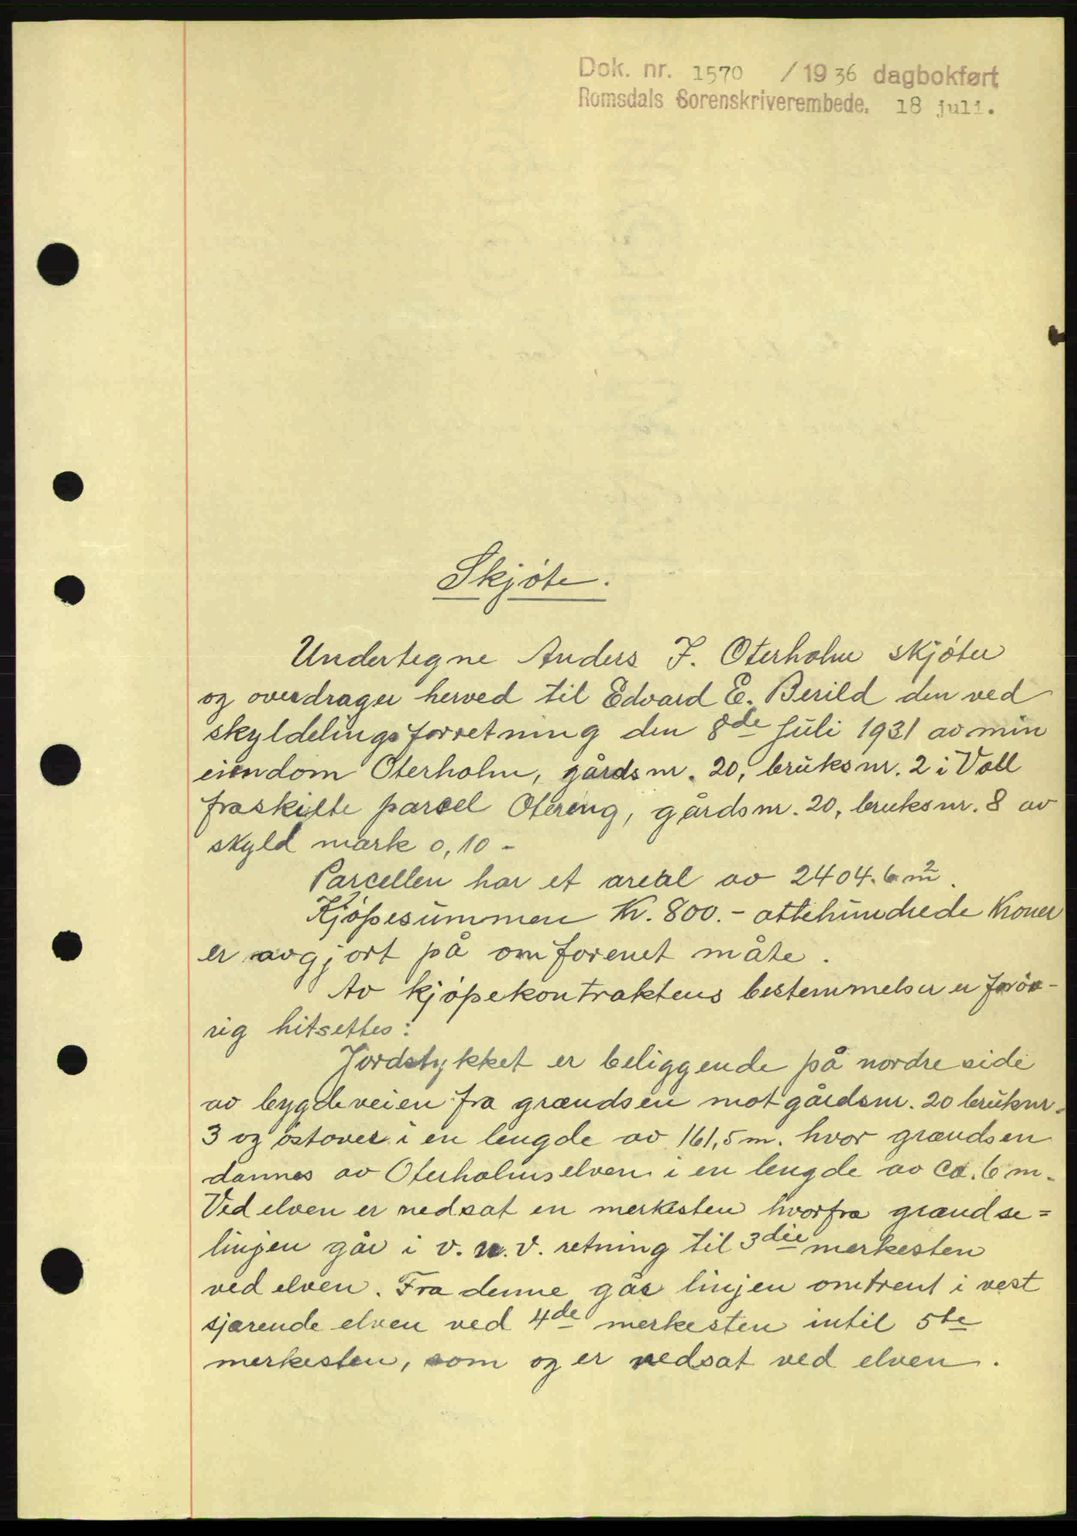 Dok. nr. 1570 / 1936 dagbokført
Romsdals Sorenskriverembede. 18 juli.
Skjøte.
Undertegne Anders J. Oterholm skjøter
og overdrager herved til Edvard E. Berild den ved
skyldelingsforretning den 8de Juli 1931 av min
eiendom Oterholm, gårdsnr. 20, bruksnr. 2 i Voll
fraskilte parcel Otereng, gårdsnr. 20, bruksnr. 8 av
skyld mark 0,10 -
Parcellen har et areal av 2404.6 m2.
Kjøpesummen Kr. 800.- åttehundrede Kroner
er avgjort på omforenet måte.
Av kjøpekontraktens bestemmelser er forøv-
rig hitsettes:
Jordstykket er beliggende på nordre side
av bygdeveien fra grændsen mot gårdsnr. 20 bruknr.
3 og østover i en lengde av 161,5 m. hvor grændsen
dannes av Oterholmselven i en lengde av ca. 6 m.
Ved elven er nedsat en merkesten hvorfra grændse=
linjen går i v. n. v. retning til 3die merkesten
ved elven. Fra denne går linjen omtrent i vest
sjærende elven ved 4de merkesten intil 5te
merkesten, som og er nedsat ved elven.